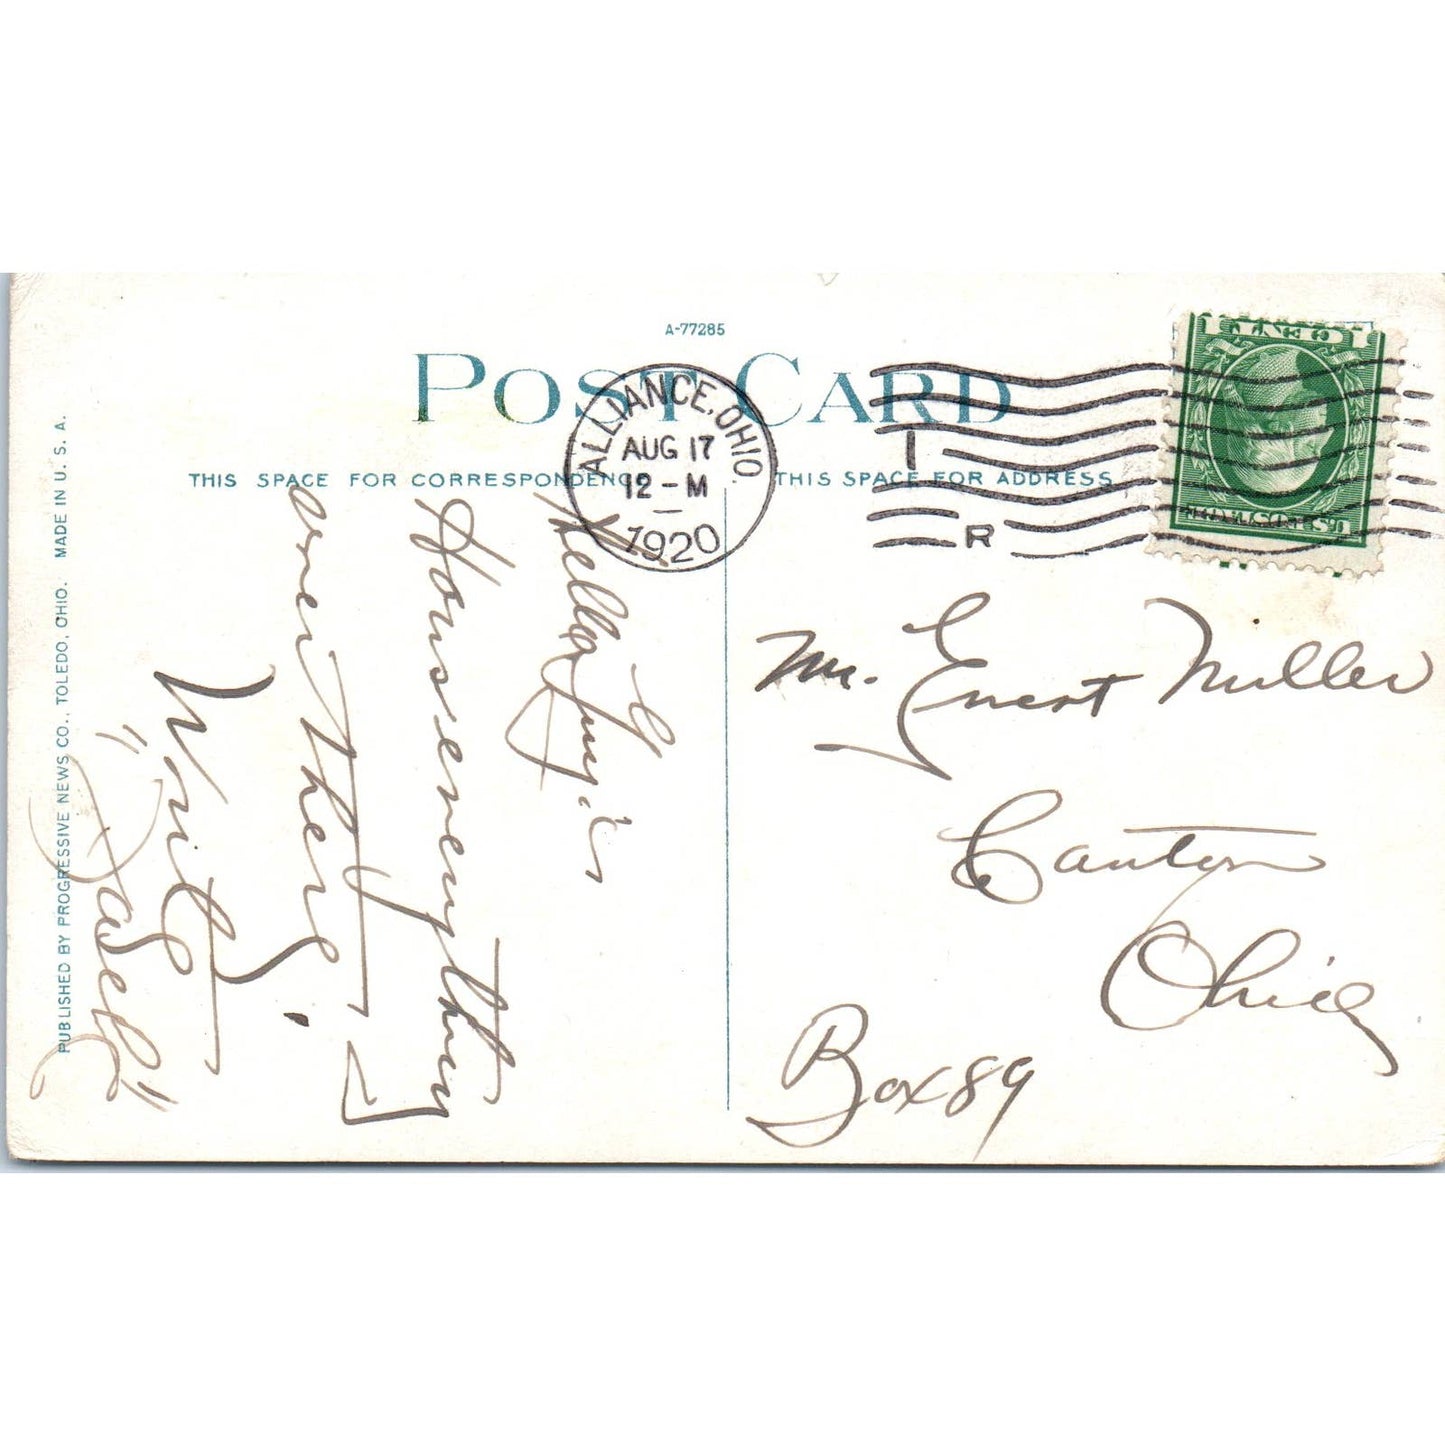 A-77285
POST CARD
THIS SPACE FOR CORRESPONDENCE
THIS SPACE FOR ADDRESS
ALLIANCE, OHIO.
AUG 17
12 - M
1920
I
R
1 CENT 1
U.S. POSTAGE
Hello
Hows everything
over there.
Write
Mr. Ernest Miller
Canton
Ohio
Box 89
PUBLISHED BY PROGRESSIVE NEWS CO., TOLEDO, OHIO. MADE IN U. S. A.